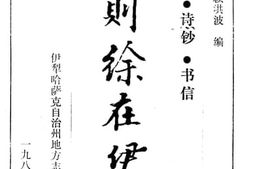 洪波 编
·诗钞·书信
则徐在伊
伊犁哈萨克自治州地方志
一九八